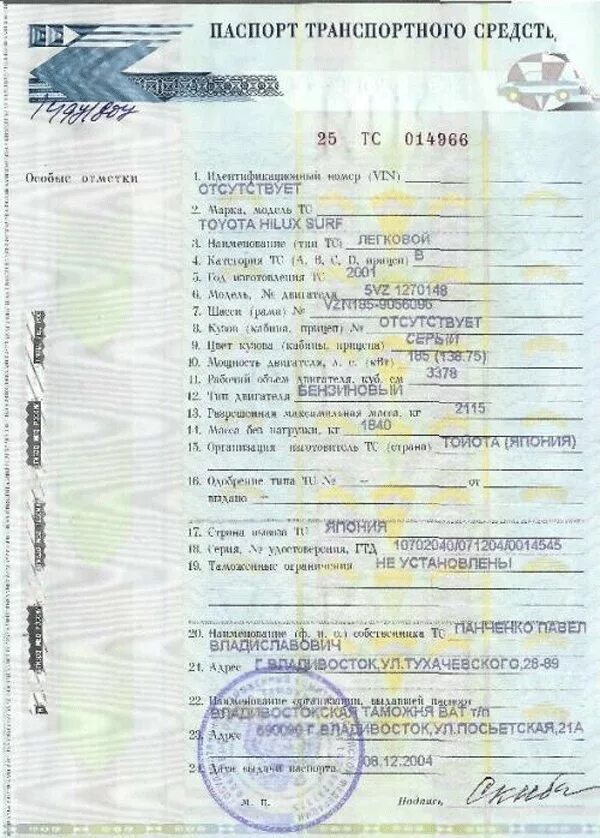 ПАСПОРТ ТРАНСПОРТНОГО СРЕДСТЬ
25 ТС 014966
Особые отметки
1. Идентификационный номер (VIN)
ОТСУТСТВУЕТ
2. Марка, модель ТС
TOYOTA HILUX SURF
3. Наименование (тип ТС) ЛЕГКОВОЙ
4. Категория ТС (A, B, C, D, прицеп) B
5. Год изготовления ТС 2001
6. Модель, № двигателя 5VZ 1270148
7. Шасси (рама) № VZN185-9056096
8. Кузов (кабина, прицеп) № ОТСУТСТВУЕТ
9. Цвет кузова (кабины, прицепа) СЕРЫЙ
10. Мощность двигателя, л. с. (кВт) 185 (138.75)
11. Рабочий объем двигателя, куб. см 3378
12. Тип двигателя БЕНЗИНОВЫЙ
13. Разрешенная максимальная масса, кг 2115
14. Масса без нагрузки, кг 1840
15. Организация – изготовитель ТС (страна) ТОЙОТА (ЯПОНИЯ)
16. Одобрение типа ТС № – от
выдано –
17. Страна вывоза ТС ЯПОНИЯ
18. Серия, № удостоверения, ГТД 10702040/071204/0014545
19. Таможенные ограничения НЕ УСТАНОВЛЕНЫ
20. Наименование (ф. и. о.) собственника ТС ПАНЧЕНКО ПАВЕЛ
ВЛАДИСЛАВОВИЧ
21. Адрес Г.ВЛАДИВОСТОК,УЛ.ТУХАЧЕВСКОГО,28-89
22. Наименование организации, выдавшей паспорт
ВЛАДИВОСТОКСКАЯ ТАМОЖНЯ ВАТ т/п
23. Адрес 690090 Г.ВЛАДИВОСТОК,УЛ.ПОСЬЕТСКАЯ,21А
24. Дата выдачи паспорта 08.12.2004
М. П. Подпись